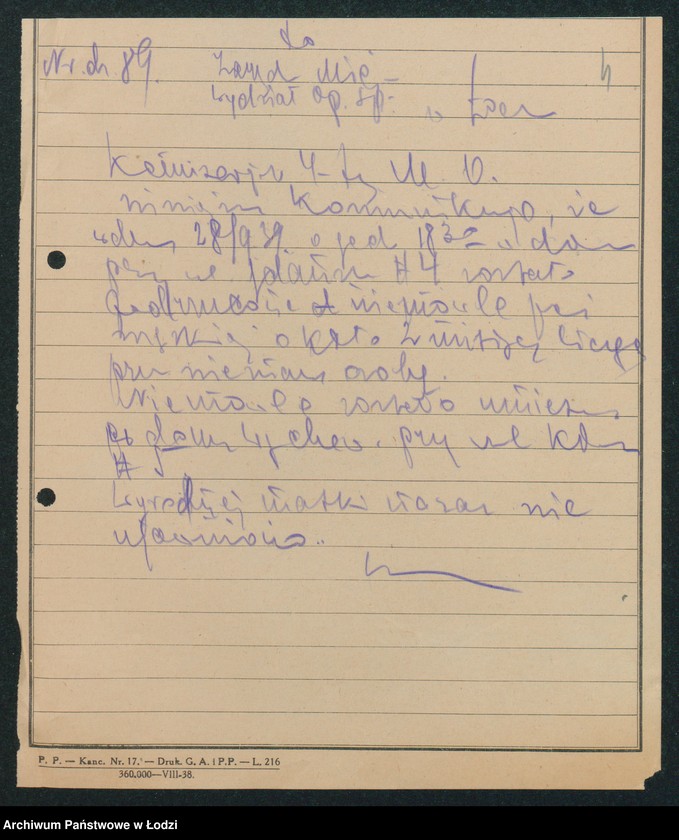 do
Nr. dz. 89. Zarząd Mie-
Wydział Op. Sp. w
Komisarjat 4-ty M. O.
komunikuje, że
w dniu 28/9 39. o god. 18 30 w
przy ul. Gdańska # 4 zostało
podrzucone niemowlę płci
męskiej około 2 miesięcy liczące
przez nieznaną osobę.
Niemowlę zostało umieszcz.
w domu wychow. przy ul.
# 5
Wyrodnej matki narazie nie
ujawniono.
P. P. — Kanc. Nr. 17. — Druk. G. A. i P.P. — L. 216
360.000—VIII-38.
Archiwum Państwowe w Łodzi